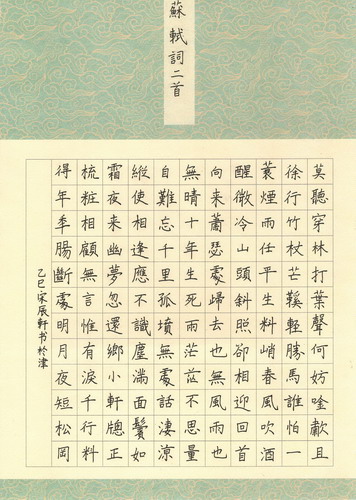 蘇軾詞二首
莫聽穿林打葉聲何妨唫歗且
徐行竹杖芒鞵輕勝馬誰怕一
蓑煙雨任平生料峭春風吹酒
醒微冷山頭斜照卻相迎回首
向来蕭瑟處歸去也無風雨也
無晴十年生死兩茫茫不思量
自難忘千里孤墳無處話淒涼
縱使相逢應不識塵滿面鬢如
霜夜来幽夢忽還鄉小軒牕正
梳粧相顧無言惟有淚千行料
得年秊腸斷處明月夜短松岡
乙巳宋辰軒书於津